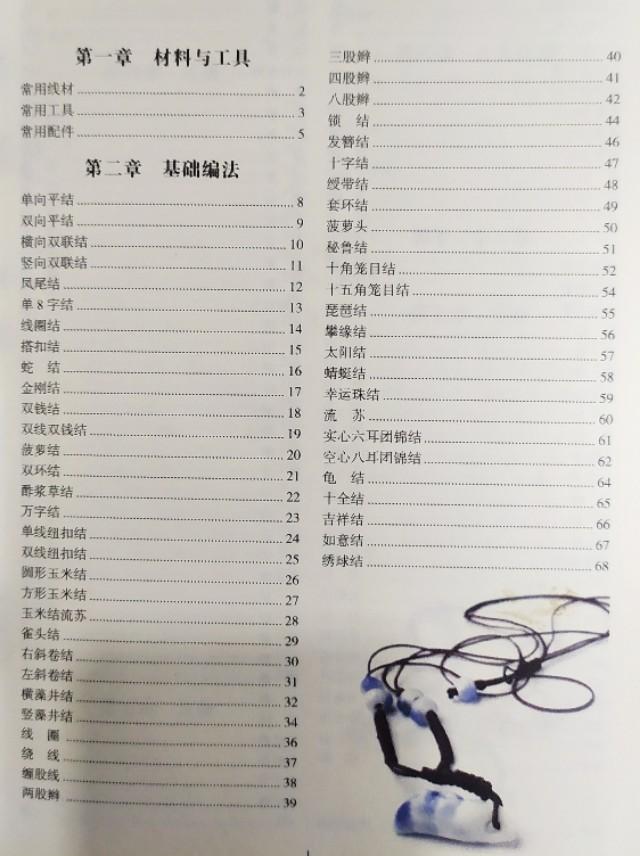 第一章 材料与工具
常用线材 2
常用工具 3
常用配件 5
第二章 基础编法
单向平结 8
双向平结 9
横向双联结 10
竖向双联结 11
凤尾结 12
单8字结 13
线圈结 14
搭扣结 15
蛇 结 16
金刚结 17
双钱结 18
双线双钱结 19
菠萝结 20
双环结 21
酢浆草结 22
万字结 23
单线纽扣结 24
双线纽扣结 25
圆形玉米结 26
方形玉米结 27
玉米结流苏 28
雀头结 29
右斜卷结 30
左斜卷结 31
横藻井结 32
竖藻井结 34
线 圈 36
绕 线 37
缠股线 38
两股辫 39
三股辫 40
四股辫 41
八股辫 42
锁 结 44
发簪结 46
十字结 47
绶带结 48
套环结 49
菠萝头 50
秘鲁结 51
十角笼目结 52
十五角笼目结 54
琵琶结 55
攀缘结 56
太阳结 57
蜻蜓结 58
幸运珠结 59
流 苏 60
实心六耳团锦结 61
空心八耳团锦结 62
龟 结 64
十全结 65
吉祥结 66
如意结 67
绣球结 68